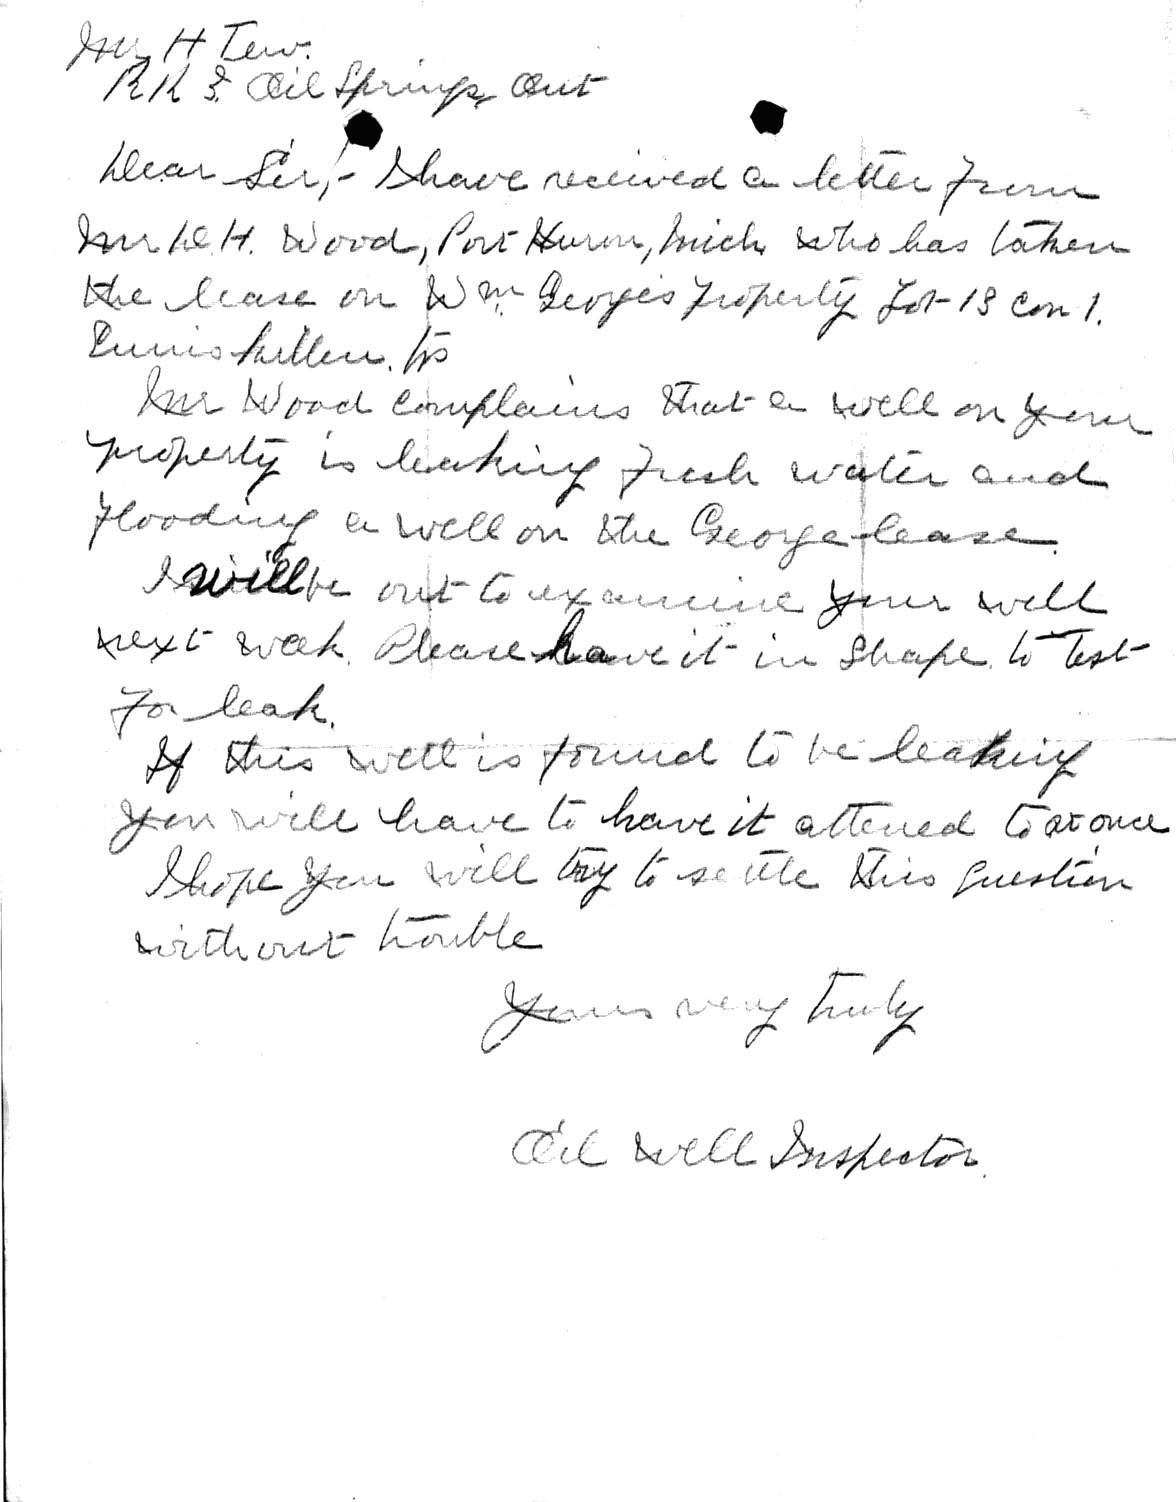 Mr H Tew.
RR 3. Oil Springs, Ont
Dear Sir,- I have received a letter from
Mr D.H. Wood, Port Huron, Mich who has taken
the lease on Wm. George's property Lot 18 Con 1.
Enniskillen.
Mr Wood complains that a well on your
property is leaking fresh water and
flooding a well on the George lease.
I will be out to examine your well
next week. Please have it in shape to test
for leak.
If this well is found to be leaking
you will have to have it attened to at once
I hope you will try to settle this question
without trouble
Yours very truly
Oil Well Inspector.